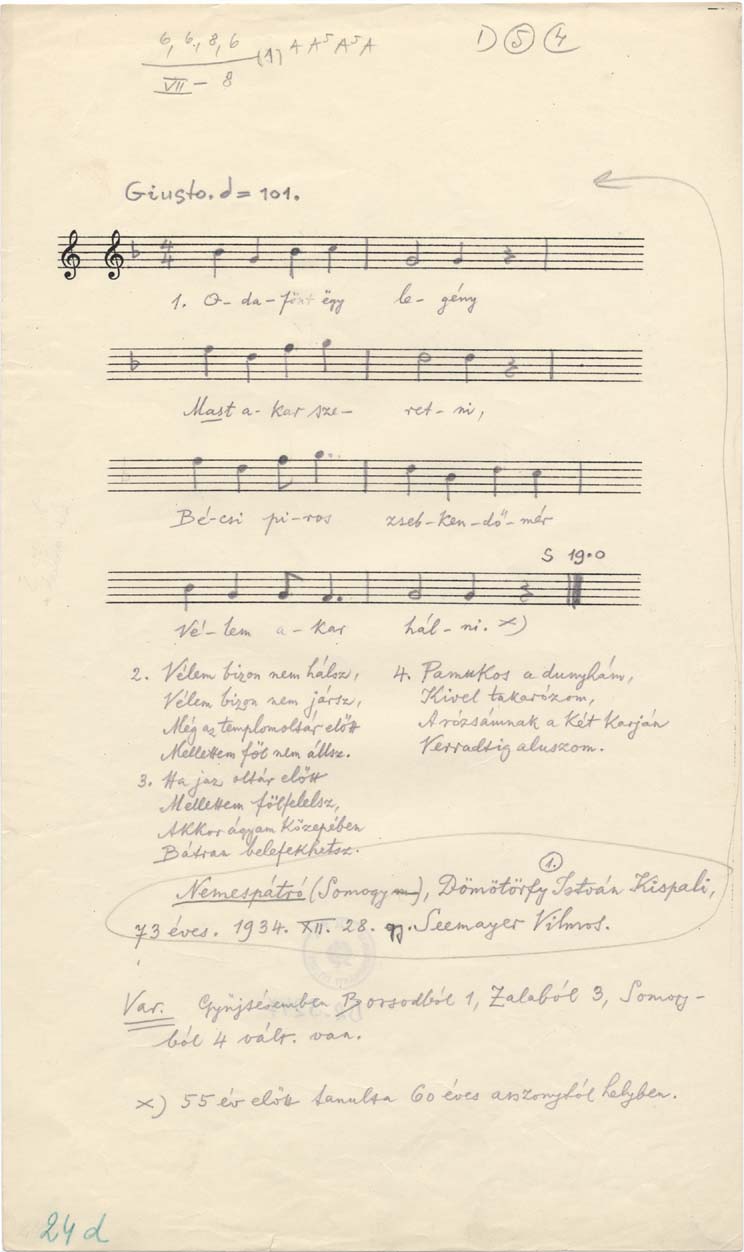 6, 6, 8, 6
VII – 8
(1) A A⁵ A⁵ A
D ⑤ ④
Giusto. d = 101.
4
4
1. O- da- fönt ëgy le- gény
Mast a- kar sze- ret- ni,
Bé-csi pi-ros zseb-ken-dő-mér
S 19.0
Vé- lem a- kar hál- ni. x)
2. Vélem bizon nem hálsz,
Vélem bizon nem jársz,
Még az templomoltár előtt
Mellettem föl nem állsz.
3. Ha jaz oltár előtt
Mellettem fölfelelsz,
Akkor ágyam közepében
Bátran belefekhetsz.
4. Pamukos a dunyhám,
Kivel takarózom,
A rózsámnak a két karján
Verradtig aluszom.
1.
Nemespátró (Somogy m), Dömötörfy István Kispali,
73 éves. 1934. XII. 28. gy. Seemayer Vilmos.
Var. Gyűjtésemben Borsodból 1, Zalából 3, Somogy-
ból 4 vált. van.
x) 55 év előtt tanulta 60 éves asszonytól helyben.
24 d